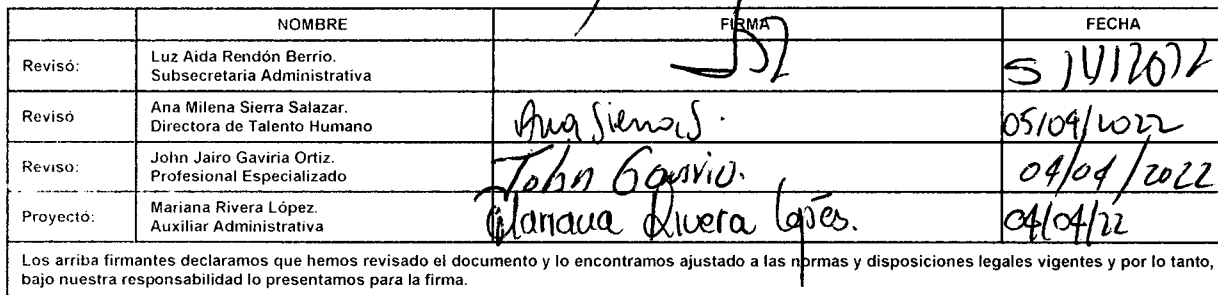 NOMBRE FIRMA FECHA
Revisó: Luz Aida Rendón Berrio.
Subsecretaria Administrativa
Revisó Ana Milena Sierra Salazar.
Directora de Talento Humano Ana Sierra S. 05/04/2022
Reviso: John Jairo Gaviria Ortiz.
Profesional Especializado John Gaviria. 04/04/2022
Proyectó: Mariana Rivera López.
Auxiliar Administrativa Mariana Rivera López. 04/04/22
Los arriba firmantes declaramos que hemos revisado el documento y lo encontramos ajustado a las normas y disposiciones legales vigentes y por lo tanto,
bajo nuestra responsabilidad lo presentamos para la firma.